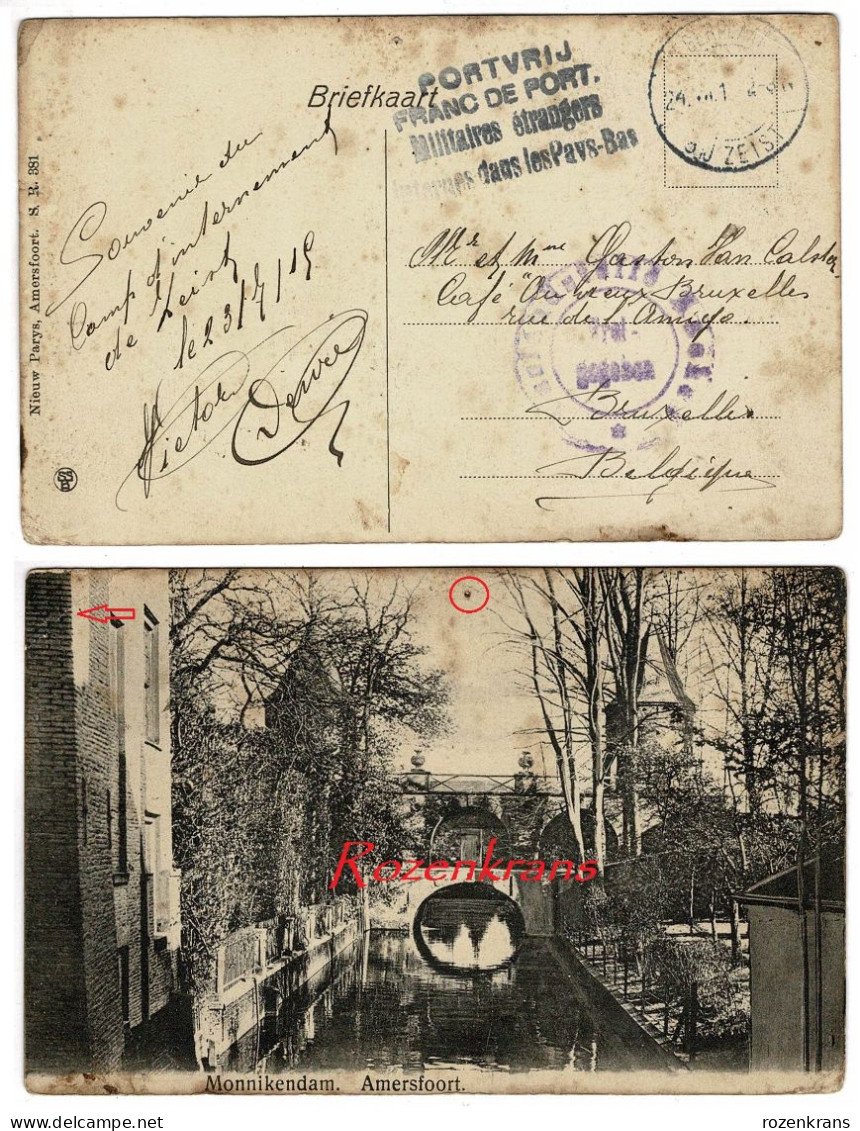 PORTVRIJ
FRANC DE PORT.
Militaires étrangers
Internés dans les Pays-Bas
Briefkaart
24. 1
ZEIST
Souvenir du
Camp d'internement
de Zeist
le 23/7/15
Victor
Mr et Mme Gaston Van Calster
Café "Au vieux Bruxelles
rue de l'Amigo.
Bruxelles
Belgique
gegeven
Nieuw Parys, Amersfoort. S. R. 381
Rozenkrans
Monnikendam. Amersfoort.
rozenkrans